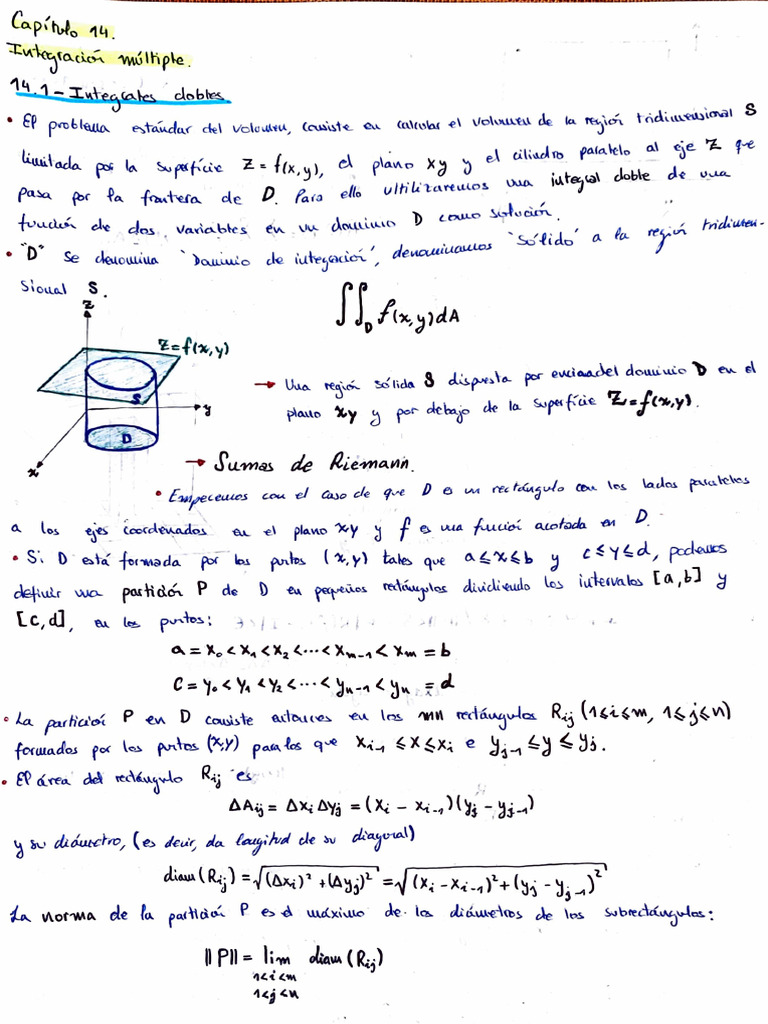 Capítulo 14.
Integración múltiple.
14.1 - Integrales dobles
• El problema estándar del volumen, consiste en calcular el volumen de la región tridimensional S
limitada por la superfície Z = f(x,y), el plano xy y el cilindro paralelo al eje Z que
pasa por la frontera de D. Para ello ultilizaremos una integral doble de una
función de dos variables en un dominio D como solución.
• "D" se denomina 'Dominio de integración', denominamos 'sólido' a la región tridimen-
sional S.
∬_D f(x,y)dA
z
Z=f(x,y)
S
y
D
x
→ Una región sólida S dispuesta por encima del dominio D en el
plano xy y por debajo de la superfície Z=f(x,y).
→ Sumas de Riemann.
• Empecemos con el caso de que D es un rectángulo con los lados paralelos
a los ejes coordenados en el plano xy y f es una función acotada en D.
• Si D está formada por los puntos (x,y) tales que a≤x≤b y c≤y≤d, podemos
definir una partición P de D en pequeños rectángulos dividiendo los intervalos [a,b] y
[c,d], en los puntos:
a = x₀ < x₁ < x₂ < ... < x_{m-1} < x_m = b
C = y₀ < y₁ < y₂ < ... < y_{n-1} < y_n = d
• La partición P en D consiste entonces en los mn rectángulos R_{ij} (1≤i≤m, 1≤j≤n)
formados por los puntos (x,y) para los que x_{i-1} ≤ x ≤ x_i e y_{j-1} ≤ y ≤ y_j.
• El área del rectángulo R_{ij} es
ΔA_{ij} = Δx_i Δy_j = (x_i - x_{i-1})(y_j - y_{j-1})
y su diámetro, (es decir, da longitud de su diagonal)
diam(R_{ij}) = √((Δx_i)² + (Δy_j)²) = √((x_i - x_{i-1})² + (y_j - y_{j-1})²)
La norma de la partición P es el máximo de los diámetros de los subrectángulos:
||P|| = lim diam (R_{ij})
1<i<m
1<j<n